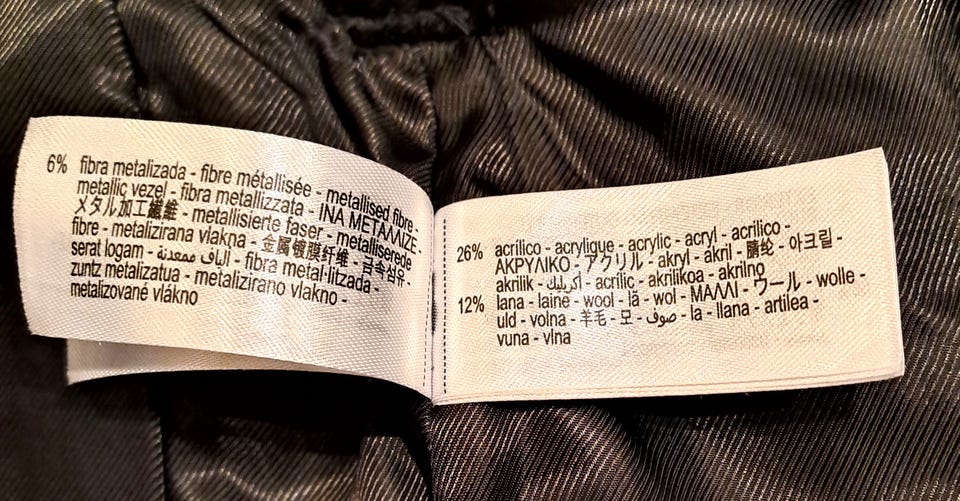 6% fibra metalizada - fibre métallisée - metallised fibre -
metallic vezel - fibra metallizzata - ΙΝΑ ΜΕΤΑΛΛΙΖΕ -
メタル加工繊維 - metallisierte faser - metalliserede
fibre - metalizirana vlakna - 金属镀膜纤维 - 금속섬유 -
serat logam - ألياف ممعدنة - fibra metal·litzada -
zuntz metalizatua - metalizirano vlakno -
metalizované vlákno
26% acrílico - acrylique - acrylic - acryl - acrilico -
ΑΚΡΥΛΙΚΟ - アクリル - akryl - akril - 腈纶 - 아크릴 -
akrilik - أكريليك - acrílic - akrilikoa - akrilno
12% lana - laine - wool - lã - wol - ΜΑΛΛΙ - ウール - wolle -
uld - volna - 羊毛 - 모 - صوف - la - llana - artilea -
vuna - vlna